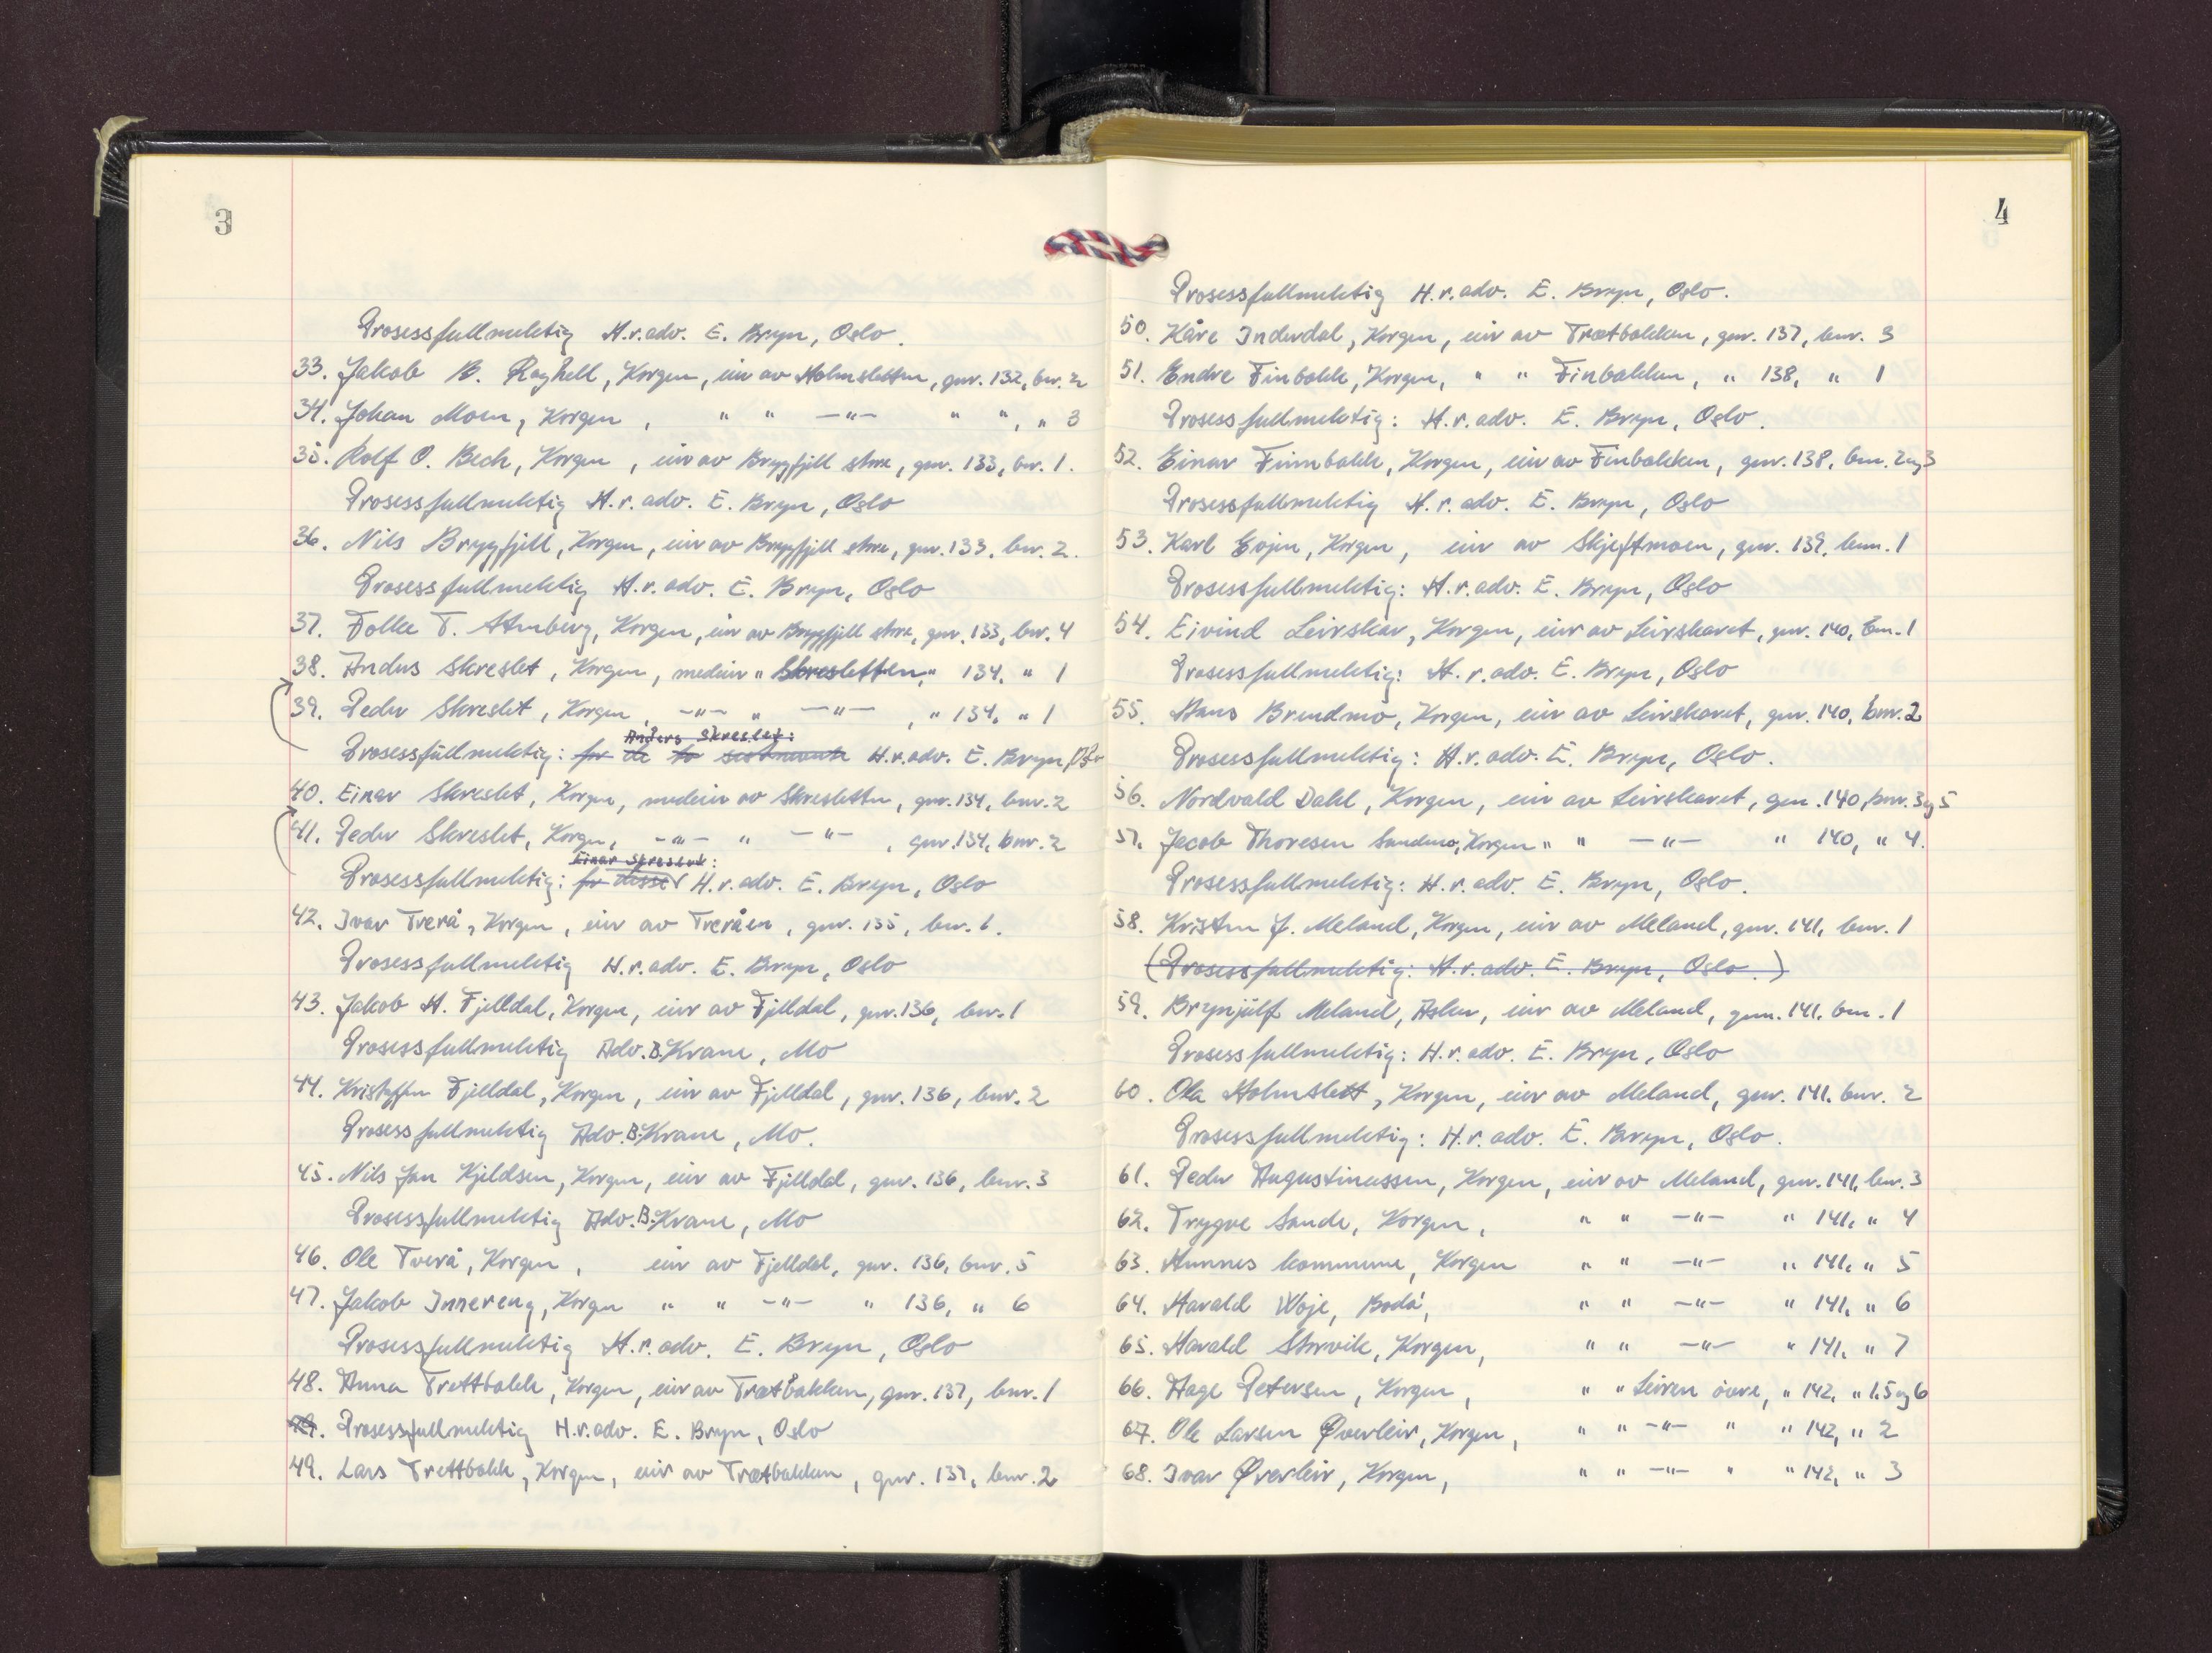 3
Prosessfullmektig H.r.adv. E. Bryn, Oslo.
33. Jakob B. Røghell, Korgen, eier av Holmsletten, gnr. 132, bnr. 2
34. Johan Moen, Korgen, " " —"— " ", " 3
35. Rolf O. Bech, Korgen, eier av Bryggfjell store, gnr. 133, bnr. 1.
Prosessfullmektig H.r.adv. E. Bryn, Oslo
36. Nils Bryggfjell, Korgen, eier av Bryggfjell store, gnr. 133, bnr. 2.
Prosessfullmektig H.r.adv. E. Bryn, Oslo
37. Tolle T. Almberg, Korgen, eier av Bryggfjell store, gnr. 133, bnr. 4
38. Anders Skreslet, Korgen, medeier " Skresletten, " 134, " 1
39. Peder Skreslet, Korgen, —"— " —"— , " 134, " 1
Anders Skreslet:
Prosessfullmektig: for de to sistnevnte H.r.adv. E. Bryn, Oslo
40. Einar Skreslet, Korgen, medeier av Skresletten, gnr. 134, bnr. 2
41. Peder Skreslet, Korgen, —"— " —"— , gnr. 134, bnr. 2
Einar Skreslet:
Prosessfullmektig: for disse H.r.adv. E. Bryn, Oslo
42. Ivar Tverå, Korgen, eier av Tveråen, gnr. 135, bnr. 1.
Prosessfullmektig H.r.adv. E. Bryn, Oslo
43. Jakob H. Fjelldal, Korgen, eier av Fjelldal, gnr. 136, bnr. 1
Prosessfullmektig Adv. B. Krane, Mo
44. Kristoffer Fjelldal, Korgen, eier av Fjelldal, gnr. 136, bnr. 2
Prosessfullmektig Adv. B. Krane, Mo.
45. Nils Jan Kjeldsen, Korgen, eier av Fjelldal, gnr. 136, bnr. 3
Prosessfullmektig Adv. B. Krane, Mo
46. Ole Tverå, Korgen, eier av Fjelldal, gnr. 136, bnr. 5
47. Jakob Innereng, Korgen " " —"— " 136, " 6
Prosessfullmektig H.r.adv. E. Bryn, Oslo
48. Anna Trettbakk, Korgen, eier av Trætbakken, gnr. 137, bnr. 1
49. Prosessfullmektig H.r.adv. E. Bryn, Oslo
49. Lars Trettbakk, Korgen, eier av Trætbakken, gnr. 137, bnr. 2
4
Prosessfullmektig H.r.adv. E. Bryn, Oslo.
50. Kåre Inderdal, Korgen, eier av Trætbakken, gnr. 137, bnr. 3
51. Endre Finbakk, Korgen, " " Finbakken, " 138, " 1
Prosessfullmektig: H.r.adv. E. Bryn, Oslo.
52. Einar Finnbakk, Korgen, eier av Finbakken, gnr. 138, bnr. 2 og 3
Prosessfullmektig H.r.adv. E. Bryn, Oslo
53. Karl Evjen, Korgen, eier av Skjeftmoen, gnr. 139, bnr. 1
Prosessfullmektig: H.r.adv. E. Bryn, Oslo
54. Eivind Leirskar, Korgen, eier av Leirskaret, gnr. 140, bnr. 1
Prosessfullmektig: H.r.adv. E. Bryn, Oslo
55. Hans Brendmo, Korgen, eier av Leirskaret, gnr. 140, bnr. 2
Prosessfullmektig: H.r.adv. E. Bryn, Oslo.
56. Nordvald Dahl, Korgen, eier av Leirskaret, gnr. 140, bnr. 3 og 5
57. Jacob Thoresen Sandmo, Korgen " " —"— " 140, " 4.
Prosessfullmektig: H.r.adv. E. Bryn, Oslo.
58. Kristen J. Meland, Korgen, eier av Meland, gnr. 141, bnr. 1
(Prosessfullmektig: H.r.adv. E. Bryn, Oslo.)
59. Brynjulf Meland, Asker, eier av Meland, gnr. 141, bnr. 1
Prosessfullmektig: H.r.adv. E. Bryn, Oslo
60. Ola Holmslett, Korgen, eier av Meland, gnr. 141, bnr. 2
Prosessfullmektig: H.r.adv. E. Bryn, Oslo.
61. Peder Augustinussen, Korgen, eier av Meland, gnr. 141, bnr. 3
62. Trygve Sande, Korgen, " " —"— " 141, " 4
63. Hemnes kommune, Korgen " " —"— " 141, " 5
64. Harald Woje, Bodø, " " —"— " 141, " 6
65. Harald Storvik, Korgen, " " —"— " 141, " 7
66. Hage Petersen, Korgen, " " Leiren øvre, " 142, " 1.5 og 6
67. Ole Larsen Øverleir, Korgen, " " —"— " " 142, " 2
68. Ivar Øverleir, Korgen, " " —"— " " 142, " 3